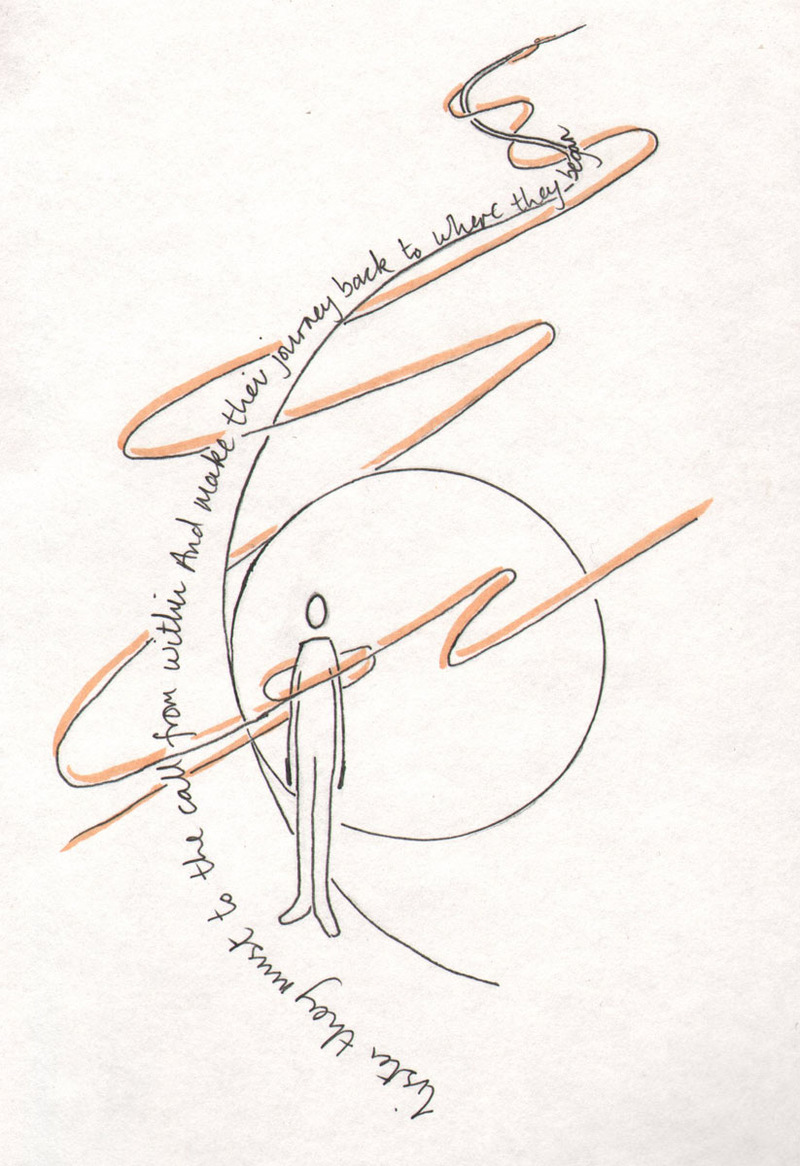 Listen they must to the call from within And make their journey back to where they began